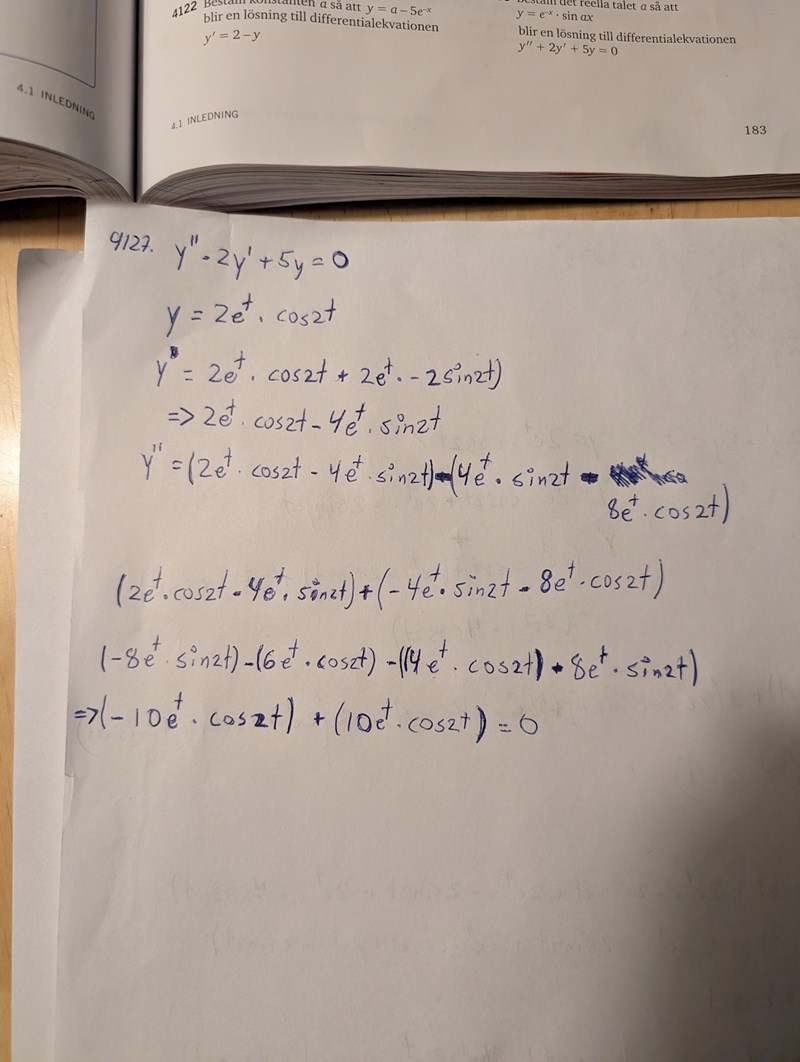 4122 Bestäm konstanten a så att y = a – 5e⁻ˣ
blir en lösning till differentialekvationen
y′ = 2 – y
Bestäm det reella talet a så att
y = e⁻ˣ · sin ax
blir en lösning till differentialekvationen
y″ + 2y′ + 5y = 0
4.1 INLEDNING
4.1 INLEDNING
183
4127. y″ - 2y′ + 5y = 0
y = 2eᵗ · cos2t
y′ = 2eᵗ · cos2t + 2eᵗ · -2sin2t)
=> 2eᵗ · cos2t - 4eᵗ · sin2t
y″ = (2eᵗ · cos2t - 4eᵗ · sin2t) - (4eᵗ · sin2t -
8eᵗ · cos2t)
(2eᵗ · cos2t - 4eᵗ · sin2t) + (-4eᵗ · sin2t - 8eᵗ · cos2t)
(-8eᵗ · sin2t) - (6eᵗ · cos2t) - ((4eᵗ · cos2t) + 8eᵗ · sin2t)
=> (-10eᵗ · cos2t) + (10eᵗ · cos2t) = 0